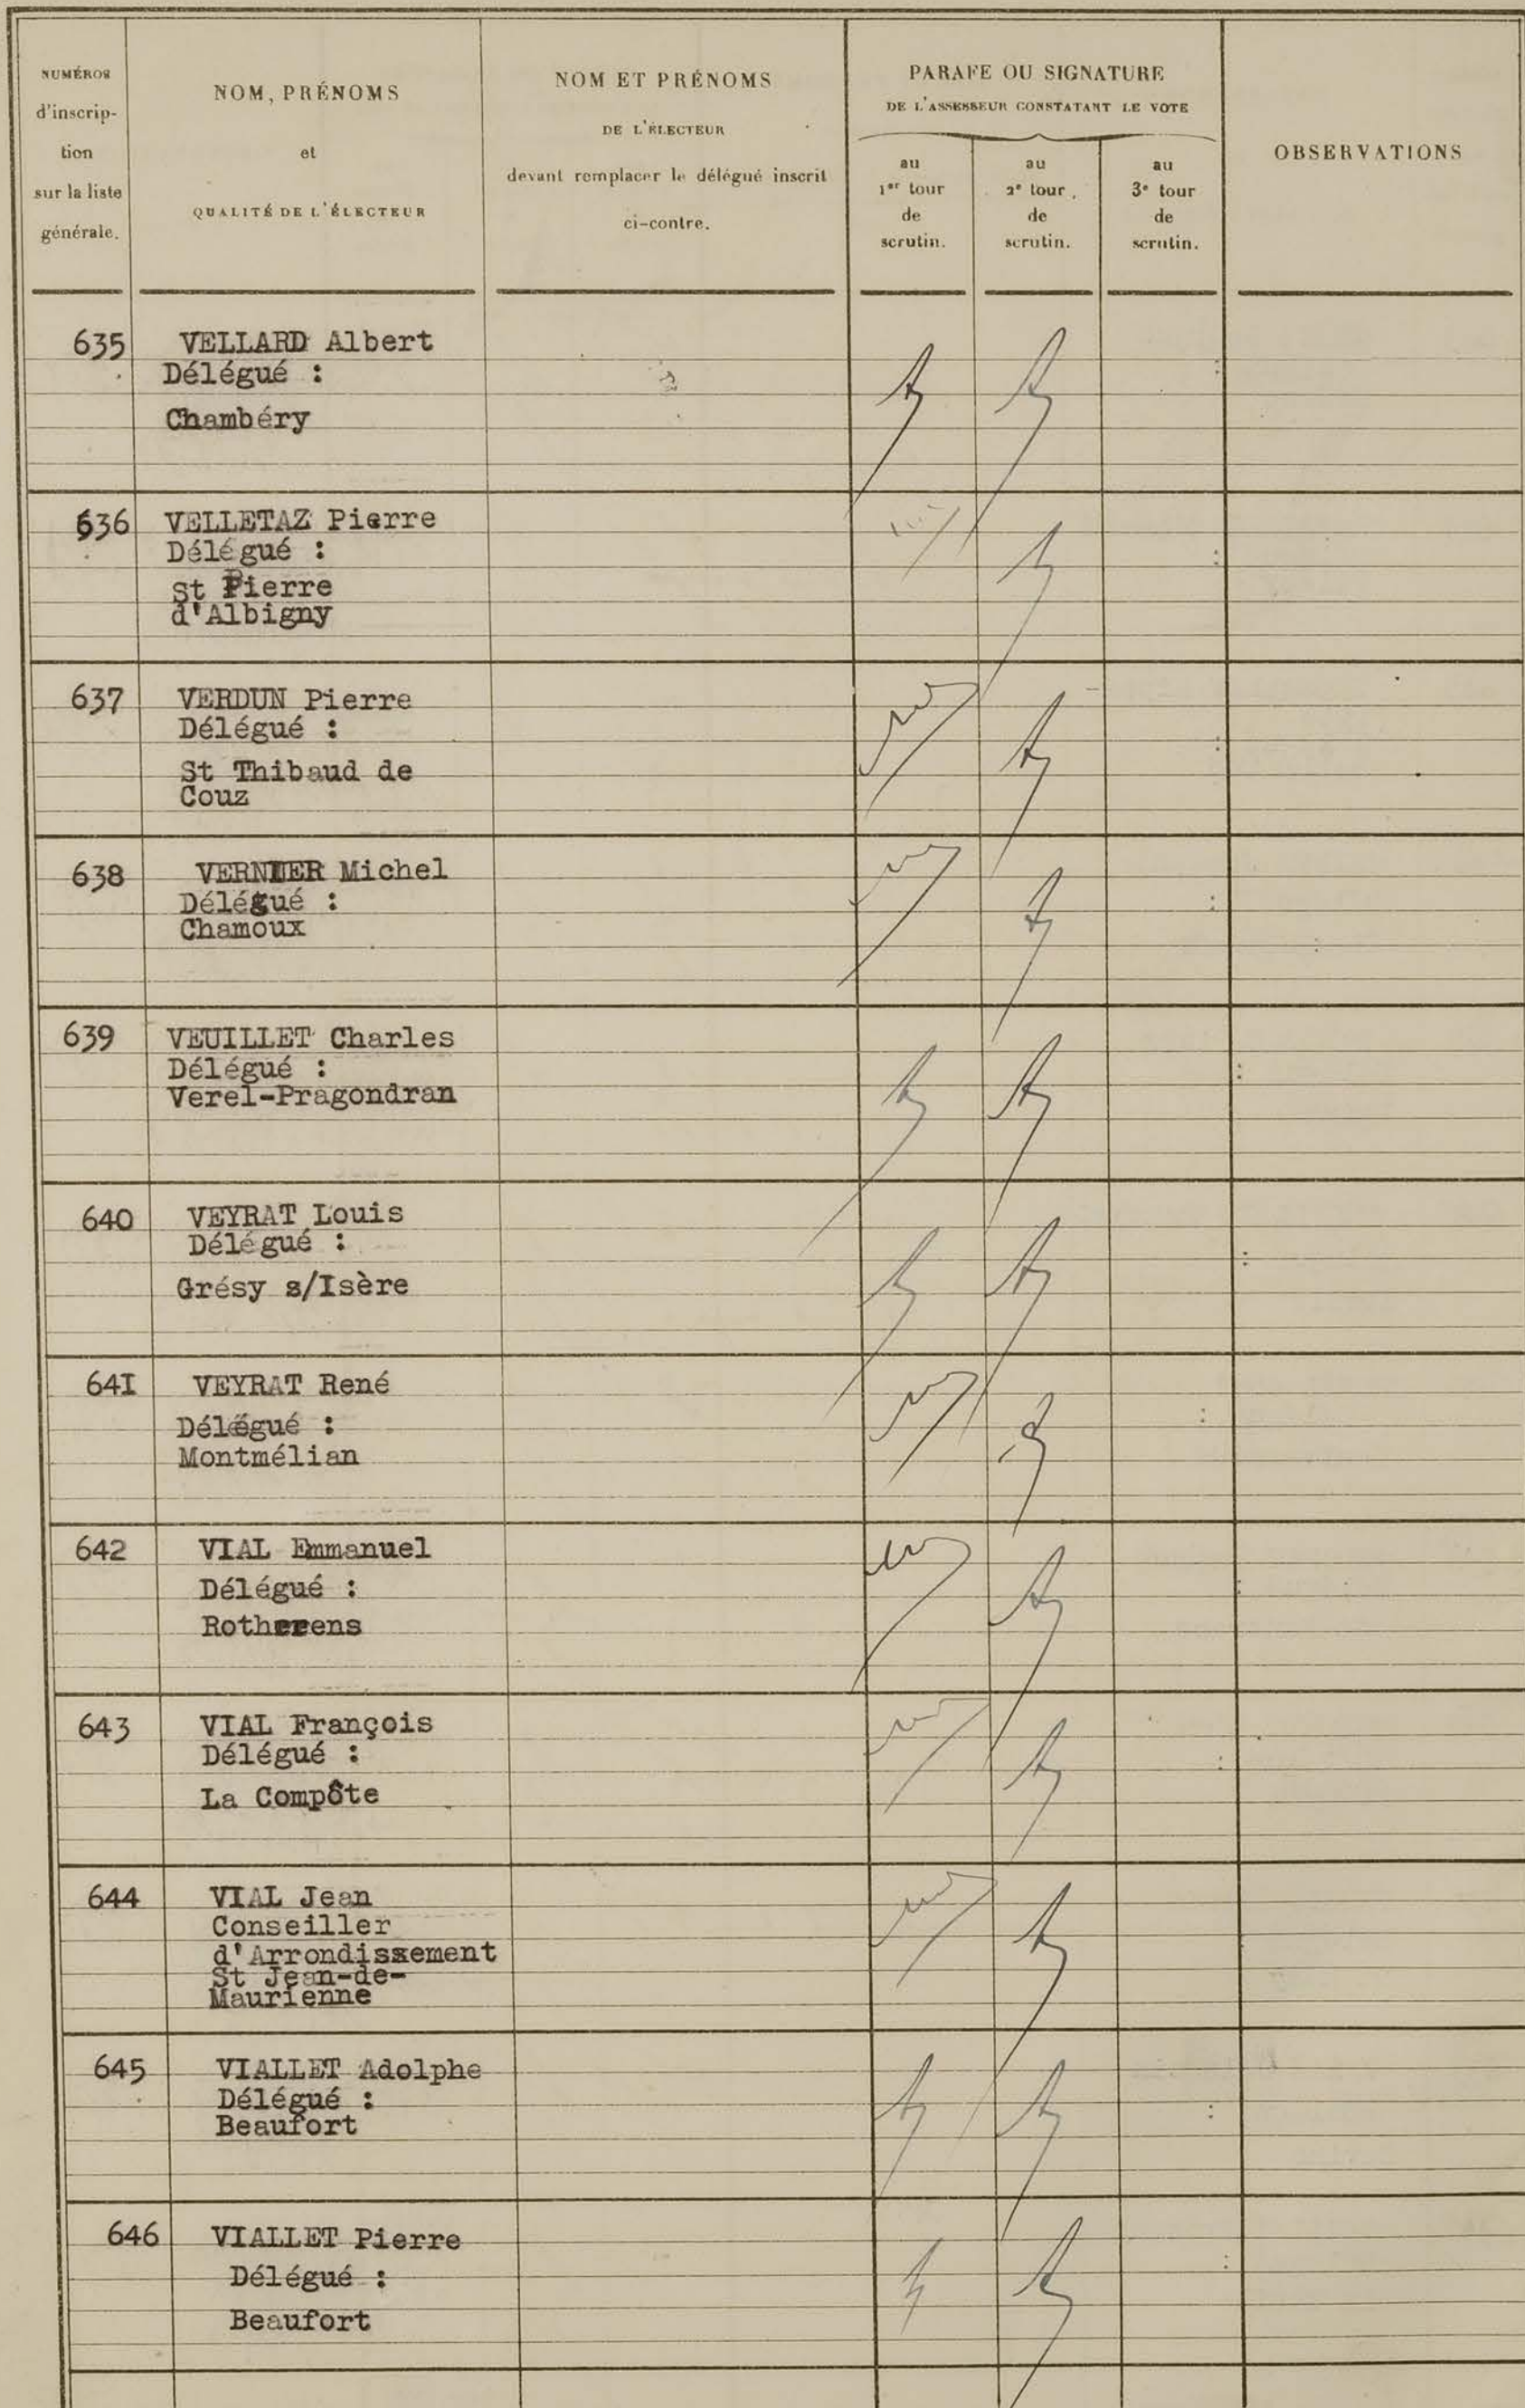 NUMÉROS
d'inscrip-
tion
sur la liste
générale.
NOM, PRÉNOMS
et
QUALITÉ DE L'ÉLECTEUR
NOM ET PRÉNOMS
DE L'ÉLECTEUR
devant remplacer le délégué inscrit
ci-contre.
PARAFE OU SIGNATURE
DE L'ASSESSEUR CONSTATANT LE VOTE
au
1er tour
de
scrutin.
au
2e tour.
de
scrutin.
au
3e tour
de
scrutin.
OBSERVATIONS
635 VELLARD Albert
Délégué :
Chambéry
636 VELLETAZ Pierre
Délégué :
St Pierre
d'Albigny
637 VERDUN Pierre
Délégué :
St Thibaud de
Couz
638 VERNIER Michel
Délégué :
Chamoux
639 VEUILLET Charles
Délégué :
Verel-Pragondran
640 VEYRAT Louis
Délégué :
Grésy s/Isère
64I VEYRAT René
Délégué :
Montmélian
642 VIAL Emmanuel
Délégué :
Rotherens
643 VIAL François
Délégué :
La Compôte
644 VIAL Jean
Conseiller
d'Arrondissement
St Jean-de-
Maurienne
645 VIALLET Adolphe
Délégué :
Beaufort
646 VIALLET Pierre
Délégué :
Beaufort